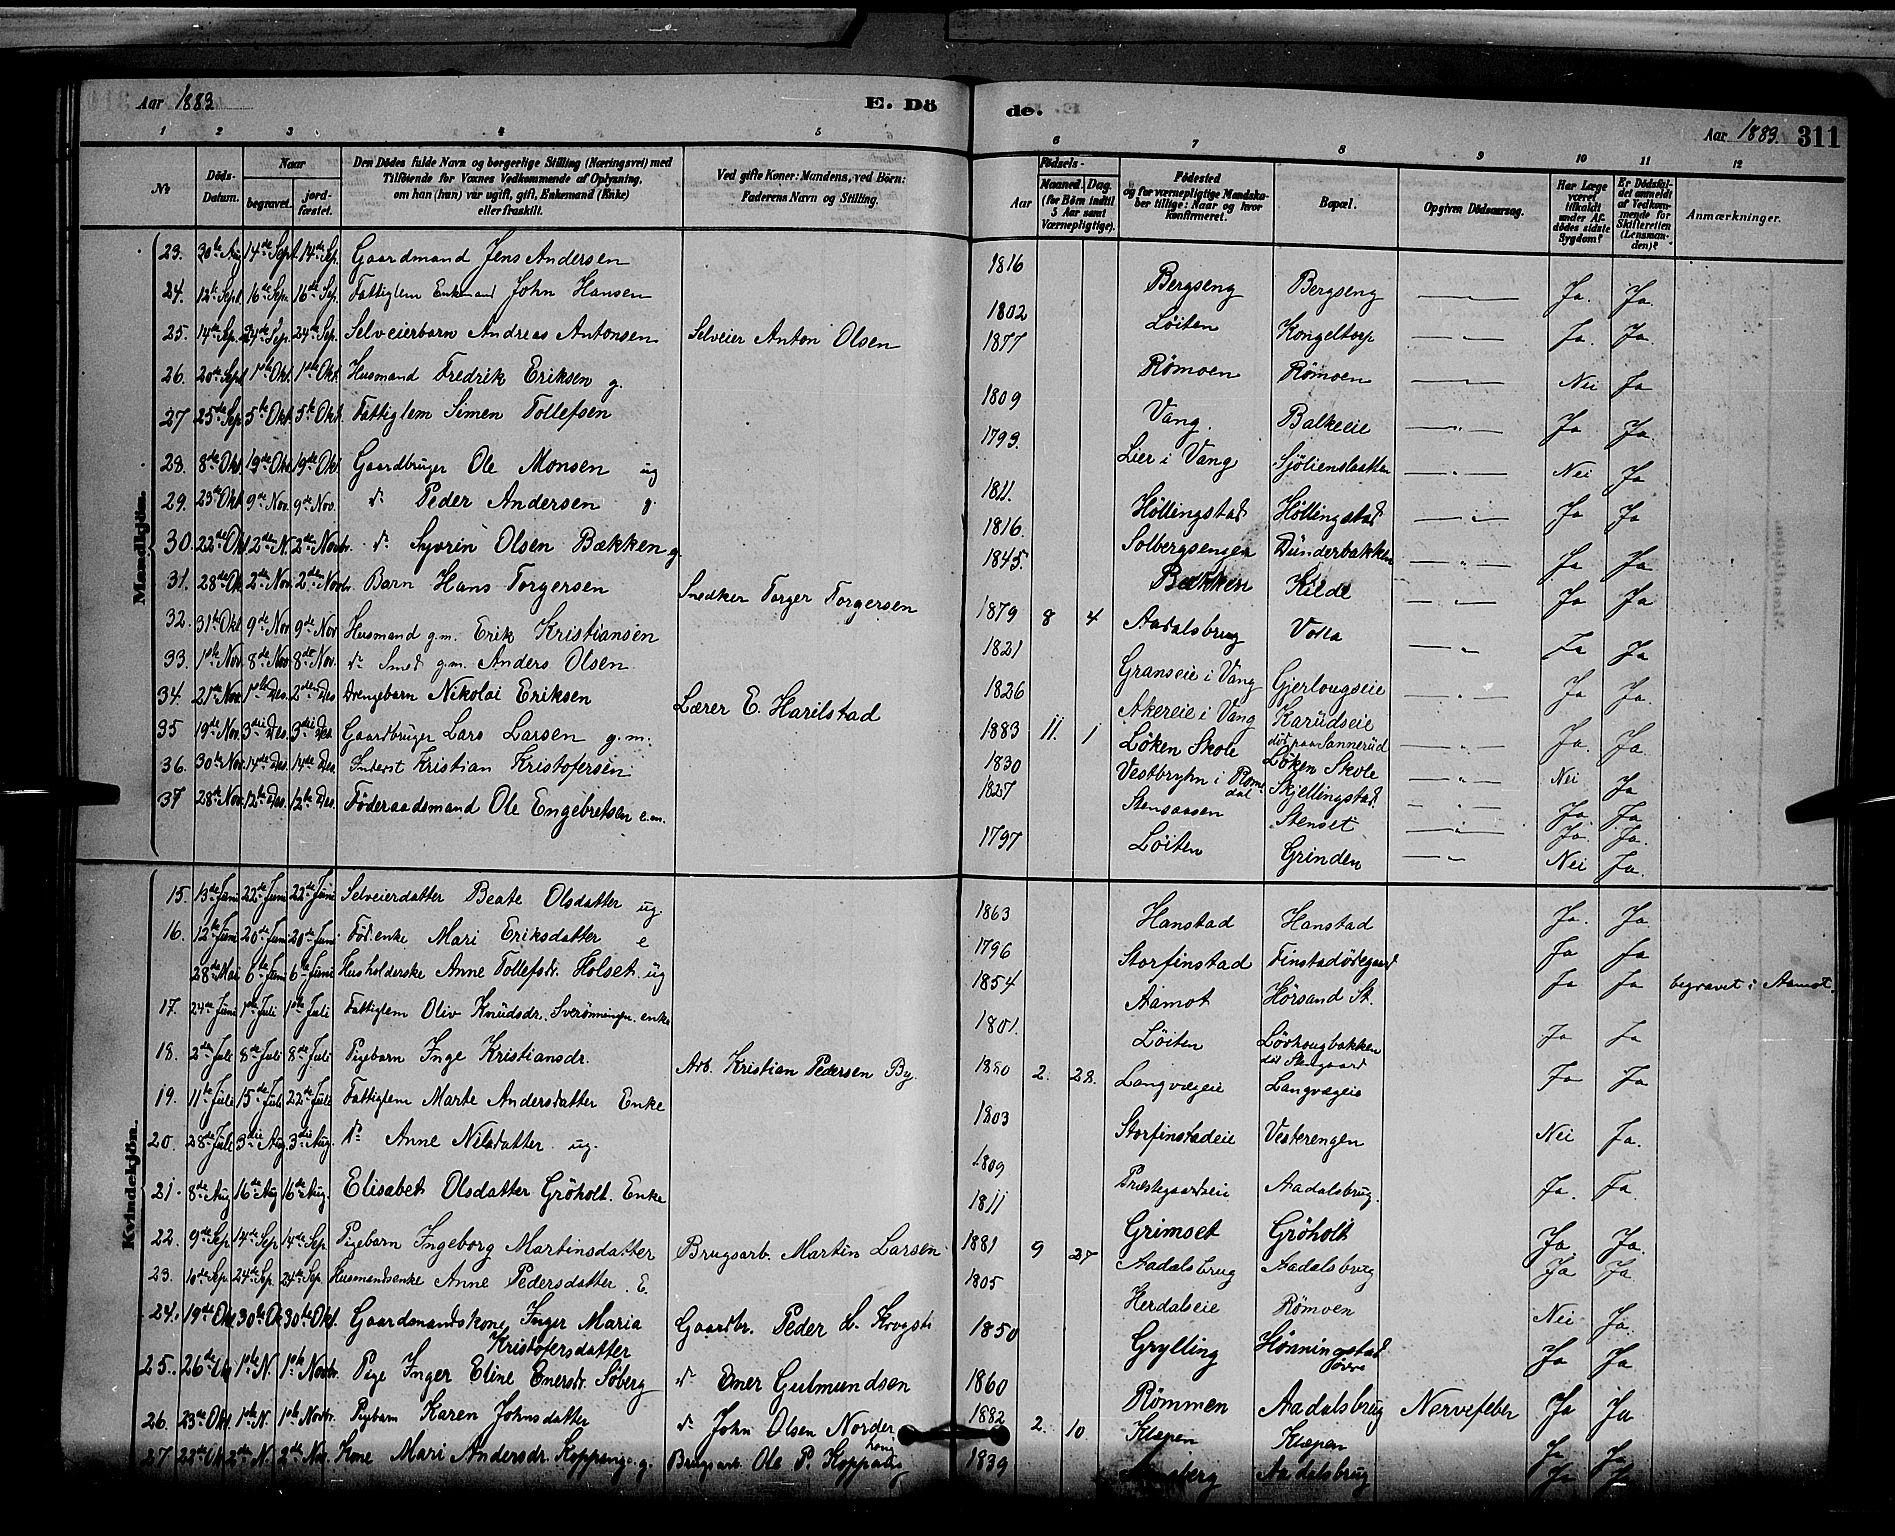 Aar 1883. E. Dö
1 2 3 4 5
No
Döds-Datum.
Naar
begravet.
jord-fæstet.
Den Dödes fulde Navn og borgerlige Stilling (Næringsvei) med Tilföiende for Voxnes Vedkommende af Oplysning, om han (hun) var ugift, gift, Enkemand (Enke) eller fraskilt.
Ved gifte Koner: Mandens, ved Börn: Faderens Navn og Stilling.
Mandkjön.
23. 30te Aug 14de Sept. 14de Sep. Gaardmand Jens Andersen
24. 12te Sept. 16de Sep. 16de Sep. Fattiglem Enkemand John Hansen
25. 14de Sep. 24de Sep. 24de Sep. Selveierbarn Andreas Antonsen Selveier Anton Olsen
26. 20de Sept 1ste Okt. 1ste Okt. Husmand Fredrik Eriksen g.
27 25de Sep 5te Okt. 5te Okt. Fattiglem Simen Tollefsen
28. 8de Okt 19de Okt 19de Okt Gaardbruger Ole Monsen ug
29. 23de Okt 9de Nov. 9de Nov. do Peder Andersen g
30. 22de Okt 2de N. 2de Novbr. do Syvrin Olsen Bækken g
31. 28de Ok 2de Nov. 2den Novbr. Barn Hans Torgersen Snedker Torger Torgersen
32. 31te Okt 9de Nov 9de Nov Husmand g.m. Erik Kristiansen
33. 1ste Nov. 8de Nov. 8de Nov. do Smed g.m. Anders Olsen
34. 21de Nov. 1ste Des. 2den Des Drengebarn Nikolai Eriksen Lærer E. Harilstad
35 19de Nov. 3die Des. 3die Des. Gaardbruger Lars Larsen g.m.
36. 30te Nov. 14de Des. 14de Des. Inderst Kristian Kristofersen
37 28de Nov. 12te Des. 12te Des. Föderaadsmand Ole Engebretsen e.m.
Kvindekjön.
15. 13de Juni 22de Juni 22de Juni Selveierdatter Beate Olsdatter ug.
16. 12te Juni 20de Juni 20de Juni Föd.enke Mari Eriksdatter e
28de Mai 6te Juni 6te Juni Husholderske Anne Tollefsdr. Holset ug
17. 24de Juni 1ste Juli 1ste Juli Fattiglem Oliv Knudsdr. enke
18. 2de Juli 8de Juli 8de Juli Pigebarn Inge Kristiansdr. Arb. Kristian Pedersen By.
19. 11te Juli 15de Juli 22de Juli Fattiglem Marte Andersdatter Enke
20. 28de Juli 3die Aug 3die Aug. do Anne Nilsdatter ug.
21. 8de Aug 16de Aug 16de Aug. Elisabet Olsdatter Gröholt. Enke
22. 9de Sep. 14de Sep 14de Sep Pigebarn Ingeborg Martinsdatter Brugsarb. Martin Larsen
23. 10de Sep 24de Sep. 24de Sep Husmandsenke Anne Pedersdatter. E.
24. 19de Okt 30te Ok 30te Okt. Gaardmandskone Inger Maria Gaardbr. Peder
Kristofersdatter
25. 26de Ok 1ste N. 1ste Novbr. Pige Inger Eline Enersdr. Söberg do Ener Gulmundsen
26. 23de Okt 1ste N. 1ste Novbr. Pigebarn Karen Johnsdatter do John Olsen Norder
haug
27 22de Ok 2de N. 2de Nov. Kone Mari Andersdr. Koppang g. Brugsarb. Ole P. Koppang
de. Aar 1883. 311
6 7 8 9 10 11 12
Födsels-
Aar
Maaned. Dag.
(for Börn indtil 5 Aar samt Værnepligtige).
Födested og for værnepligtige Mandska-ber tillige: Naar og hvor Konfirmeret.
Bopæl.
Opgiven Dödsaarsag.
Har Læge været tilkaldt under Af-dödes sidste Sygdom?
Er Dödsfal-det anmeldt af Vedkom-mende for Skifteretten (Lensman-den)?
Anmærkninger.
1816 Bergseng Bergseng Ja. Ja.
1802 Löiten Kongeltorp Ja. Ja.
1877 Römoen Römoen Nei Ja
1809 Vang. Balkeeie Ja Ja.
1793. Lier i Vang Sjölienslaatten Nei Ja
1811. Höllingstad Höllingstad Ja Ja
1816. Solbergsengen Dünderbakken Ja Ja
1845. Bækken Kilde Ja Ja
1879 8 4 Aadalsbrug Volla Ja Ja
1821 Granseie i Vang Gjerlougseie Ja Ja.
1826 Akereie i Vang Karüdseie Ja. Ja.
död paa Sannerüd
1883 11. 1 Löken Skole Löken Skole Nei Ja
1830 Vestbryhn i Rome
dal Skjellingstad. Ja. Ja
1827 Stensaasen Stenset Ja. Ja.
1797 Löiten Grinden Nei Ja.
1863 Hanstad Hanstad Ja. Ja.
1796 Storfinstad Finstadödegaard Ja Ja
1854 Aamot Hörsand St. Ja Ja begravet i Aamot.
1801. Löiten Lövhougbakken Ja Ja
1880 2. 28. Langvægeie Langvægeie Ja Ja
1803 Storfinstadeie Vesterengen Nei Ja.
1809 Præstegaardseie Aadalsbrug. Ja. Ja.
1811 Grimset Gröholt Ja. Ja.
1881 9 27 Aadalsbrug Aadalsbrug Ja Ja.
1805 Herdalseie Römoen Nei Ja.
1850 Grylling Hönningstad Ja Ja
1860 Römmen Aadalsbrug Nervefeber Ja Ja
1882 2. 10. Klæpen Klæpen Ja Ja
1839 Aadalsbrug Ja Ja